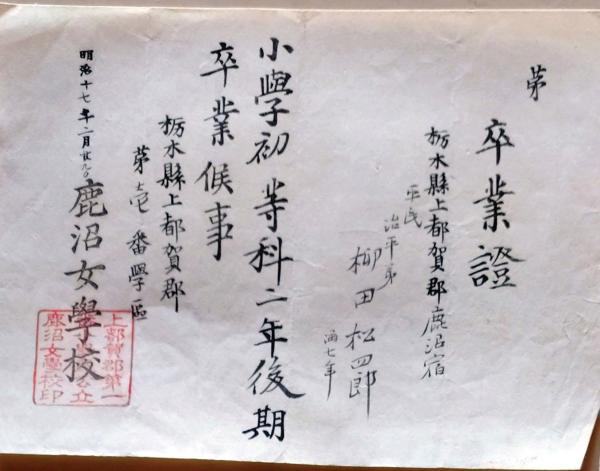 第
卒業證
栃木縣上都賀郡鹿沼宿
平民
治平弟
柳田松四郎
満七年
小學初等科二年後期
卒業候事
栃木縣上都賀郡
第壱番學區
鹿沼女學校
明治十七年二月廿九日
上都賀郡第一
鹿沼女學校印